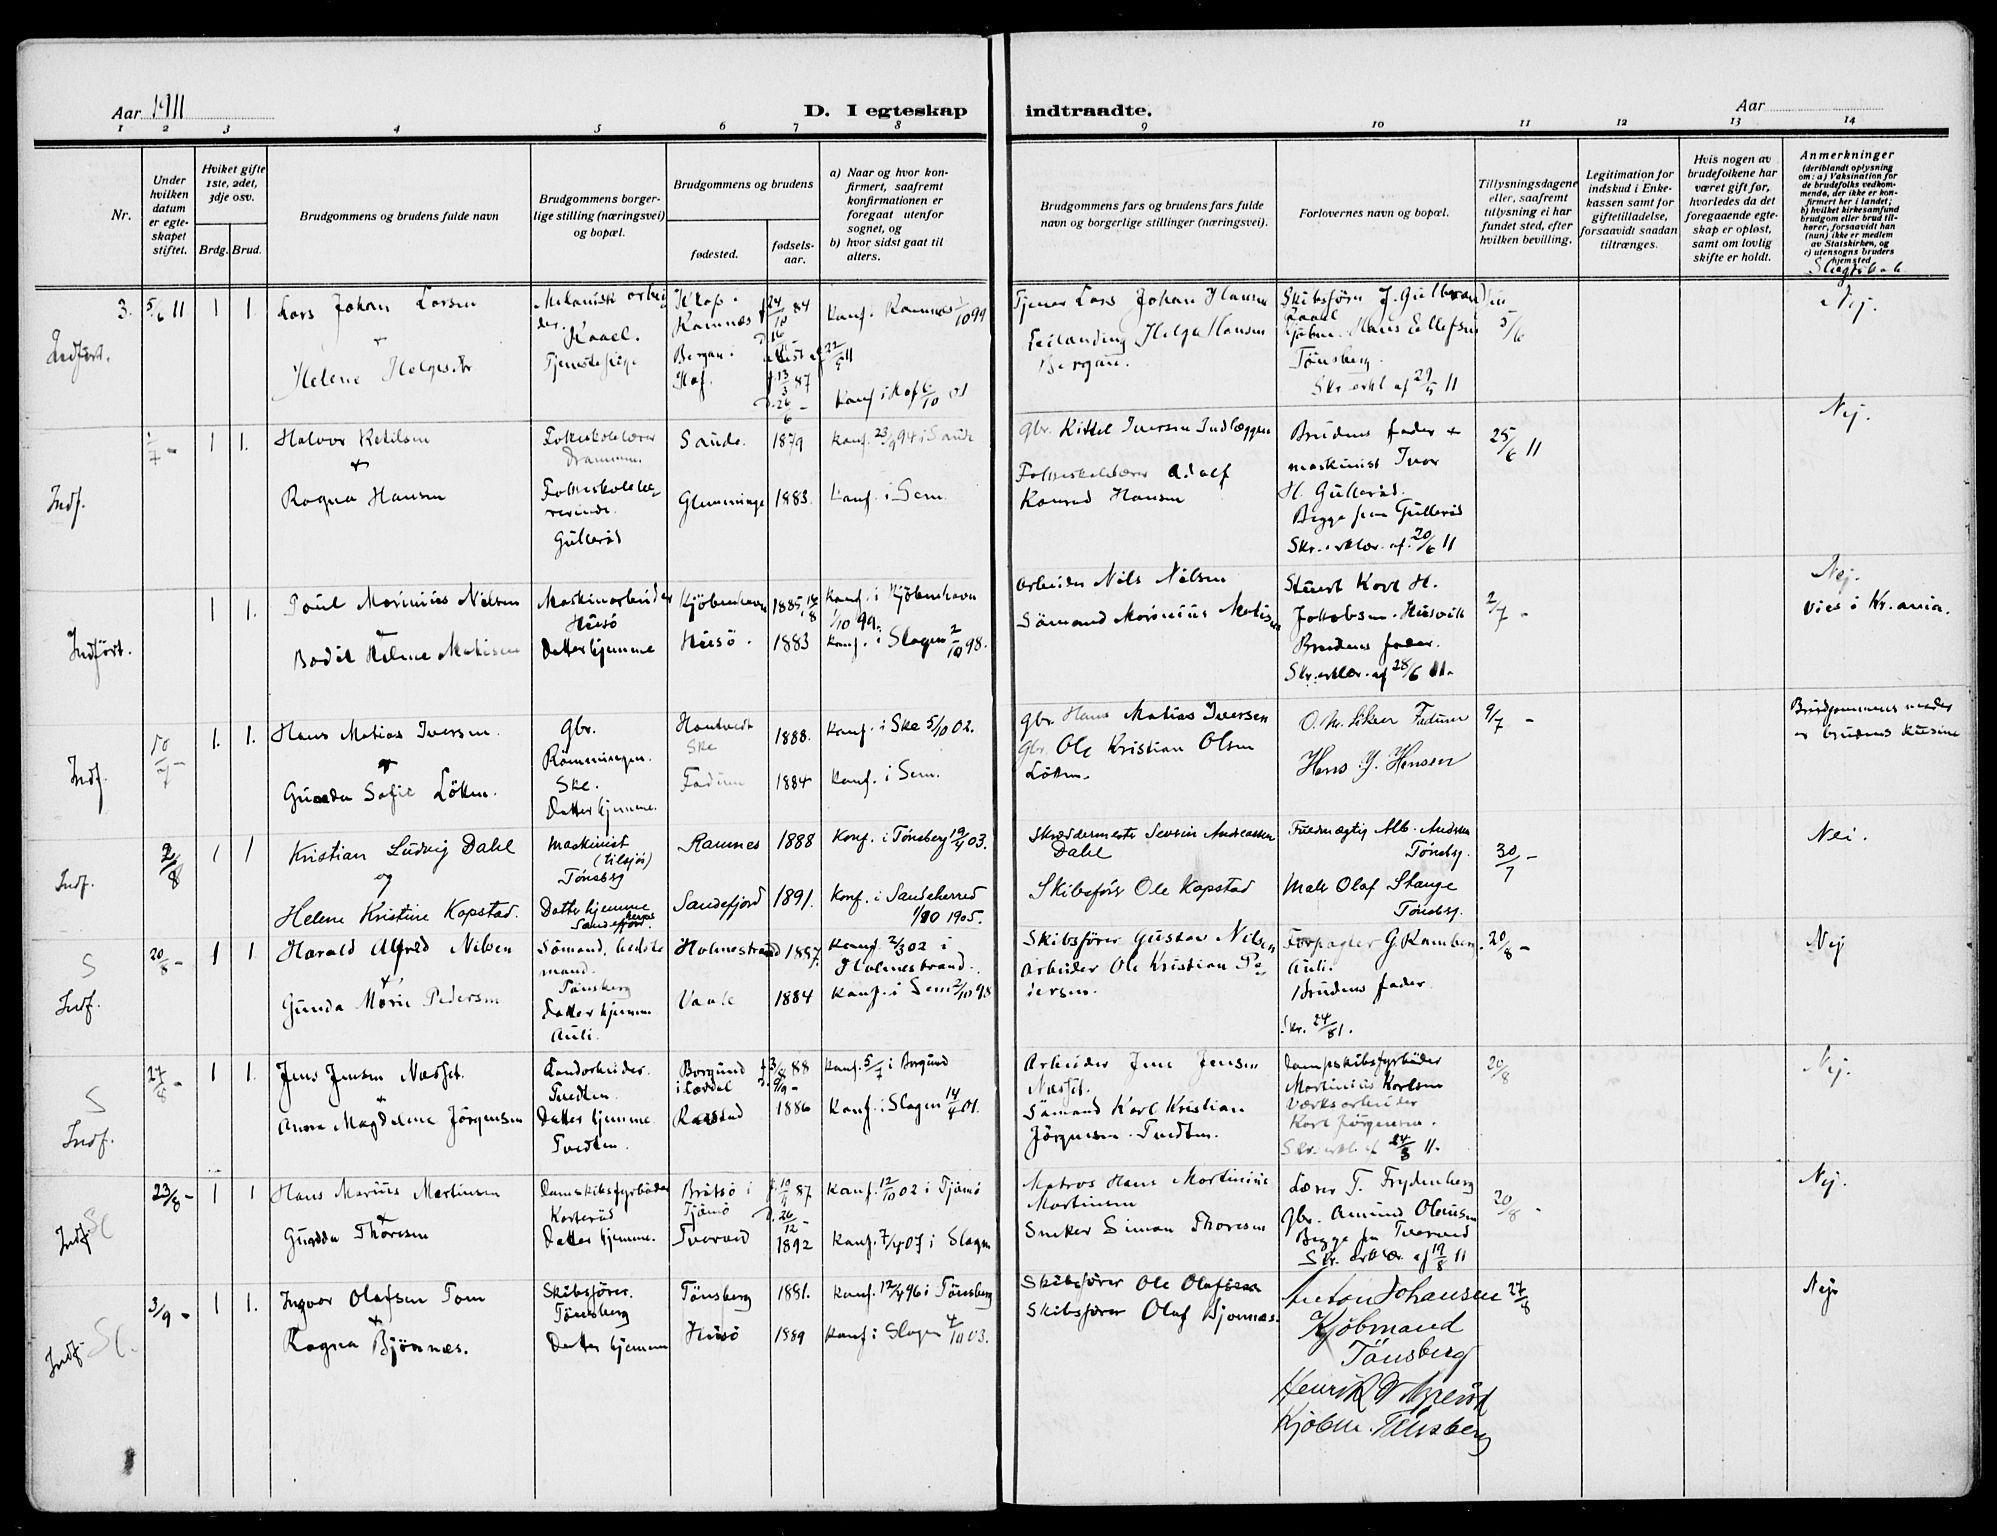 Aar 1911
D. I egteskap
indtraadte.
Aar
1 2 3 4 5 6 7 8 9 10 11 12 13 14
Nr.
Under hvilken datum er egte-skapet stiftet.
Hviket gifte 1ste, 2det, 3dje osv.
Brdg. Brud.
Brudgommens og brudens fulde navn
Brudgommens borger-lige stilling (næringsvei) og bopæl.
Brudgommens og brudens
fødested.
fødsels-aar.
a) Naar og hvor kon-firmert, saafremt konfirmationen er foregaat utenfor sognet, og
b) hvor sidst gaat til alters.
Brudgommens fars og brudens fars fulde navn og borgerlige stillinger (næringsvei).
Forlovernes navn og bopæl.
Tillysningsdagene eller, saafremt tillysning ei har fundet sted, efter hvilken bevilling.
Legitimation for indskud i Enke-kassen samt for giftetilladelse, forsaavidt saadan tiltrænges.
Hvis nogen av brudefolkene har været gift før, hvorledes da det foregaaende egte-skap er opløst, samt om lovlig skifte er holdt.
Anmerkninger
(deriblandt oplysning om: a) Vaksination for de brudefolks vedkom-mende, der ikke er kon-firmert her i landet; b) hvilket kirkesamfund brudgom eller brud til-hører, forsaavidt han (hun) ikke er medlem av Statskirken, og c) utensogns bruders hjemsted
3. 5/6 11 1 1.
Indført.
Lars Johan Larsen
+
Helene Helgesdtr
Kaael.
Tjenestepige
Ramnes
Bergan i
Hof.
Konf. Ramnes 1/10 99
Konf. i Hof
Tjener Lars Johan Hansen
Helge Hansen
Bergan.
Skibsfører J. Gulbrandsen
Kjøbm. Hans Ellefsen
Tønsberg.
Skr. erkl af 29/5 11
5/6
Nej.
1/7 - 1 1.
Indf.
Halvor Ketilsen
+
Ragna Hansen
Folkeskolelærer
Drammen.
Folkeskolelæ-
rerinde.
Gullerød
Sande. 1879 Konf. 23/9 94 i Sande
Glemminge 1883. Konf. i Sem.
Gbr. Kittel Iversen Indlæggen
Folkeskolelærer Adolf
Konrad Hansen
Brudens fader +
maskinist Ivar
H. Gullerød.
Begge fra Gullerød
Skr. erklær. af. 20/6 11
25/6 11
Nej.
1 1.
Indført.
Poul Marinius Nilsen
+
Bodil Helene Matisen
Maskinarbeider
Husö
Datter hjemme
Kjöbenhavn 1885
Husö. 1883
Konf. i Kjöbenhavn
1/10 99.
Konf. i Slagen 2/10 98.
Arbeider Nils Nilsen
Sömand Marinius Matisen
Stuert Karl H.
Jakobsen. Husvik
Brudens fader.
Skr. erklær. af 28/6 11.
2/7 -
Nej.
Vies i Kr.ania.
1. 1.
Indf.
Hans Matias Iversen.
+
Gunda Sofie Lökken.
Gbr.
Rønningen.
Ske.
Datter hjemme.
Hontvedt
Ske 1888. Konf. i Ske 5/10 02.
Fadum 1884 Konf. i Sem.
Gbr. Hans Matias Iversen
Gbr. Ole Kristian Olsen
Löken.
Fadum
Hans J. Hansen
9/7 -
Brudgommens moder
er brudens kusine
2/8 1 1
Indf.
Kristian Ludvig Dahl
og
Helene Kristine Kapstad.
Maskinist
(tilsjös)
Tønsbrg
Datter hjemme
Ramnes 1888 Konf. i Tønsberg 19/4 03.
Sandefjord 1891. Konf. i Sandeherred
1/10 1905.
Skræddermester Severin Andreassen
Dahl
Skibsfører Ole Kapstad
Fuldmægtig Alb. Andersen
Tønsbg.
Maler Olaf Stange
Tønsbg.
30/7 -
Nei.
S
Indf.
20/8 - 1 1.
Harald Alfred Nilsen
+
Gunda Marie Pedersen
Sömand, bedste
mand.
Tønsberg
Datter hjemme
Auli.
Holmestrand 1887. Konf. 2/3 02 i
Holmestrand.
Vaale 1884 Konf. i Sem 2/10 98
Skibsfører Gustav Nilsen
Arbeider Ole Kristian Pe-
dersen.
Forpagter G. Kamben
Auli.
Brudens fader
Skr. 24/8 1.
20/8 -
Nej
S
Indf.
27/8 - 1 1.
Jens Jensen Næsset.
+
Anna Magdalene Jörgensen
Landarbeider.
Tvedten.
Datter hjemme.
Tvedten.
Borgund
i Lærdal
88 Konf. 5/7 i Borgund
Raastad 1886 Konf. i Slagen 14/4 01.
Arbeider Jens Jensen
Næsset.
Sömand Karl Kristian
Jörgensen. Tvedten.
Dampskibsfyrböder
Martinius Karlsen
Værksarbeider
Karl Jørgensen.
20/8
Nej.
23/8 - 1 1
Indf. Sl
Hans Marius Martinsen
+
Gudda Thoresen
Damskibsfyrböder
Korterüd
Datter hjemme.
Bråtsö i
Tjömö
87 Konf. 12/10 02 i Tjömö
Tverved 1892 Konf. 7/4 07 i Slagen
Matros Hans Martinius
Martinsen
Sneker Simon Thoresen
Lærer T. Frydenberg
Gbr. Amund Olausen
Begge fra Tverved
Skr. erklær. af 19/8 11
20/8 -
Nej.
3/9 - 1 1.
Indf. Sl.
Ingvar Olafsen Tom
+
Ragna Bjönnæs.
Skibsfører.
Tönsberg
Datter hjemme
Tönsberg 1881. Konf. 12/4 96 i Tönsberg
Husö 1889 Konf i Slagen 4/10 03.
Skibsfører Ole Olafsen
Skibsfører Olaf Bjønnæs.
Anton Johansen
Kjøbmand
Tönsberg
Kjøbm. Tönsberg
27/8
Nej